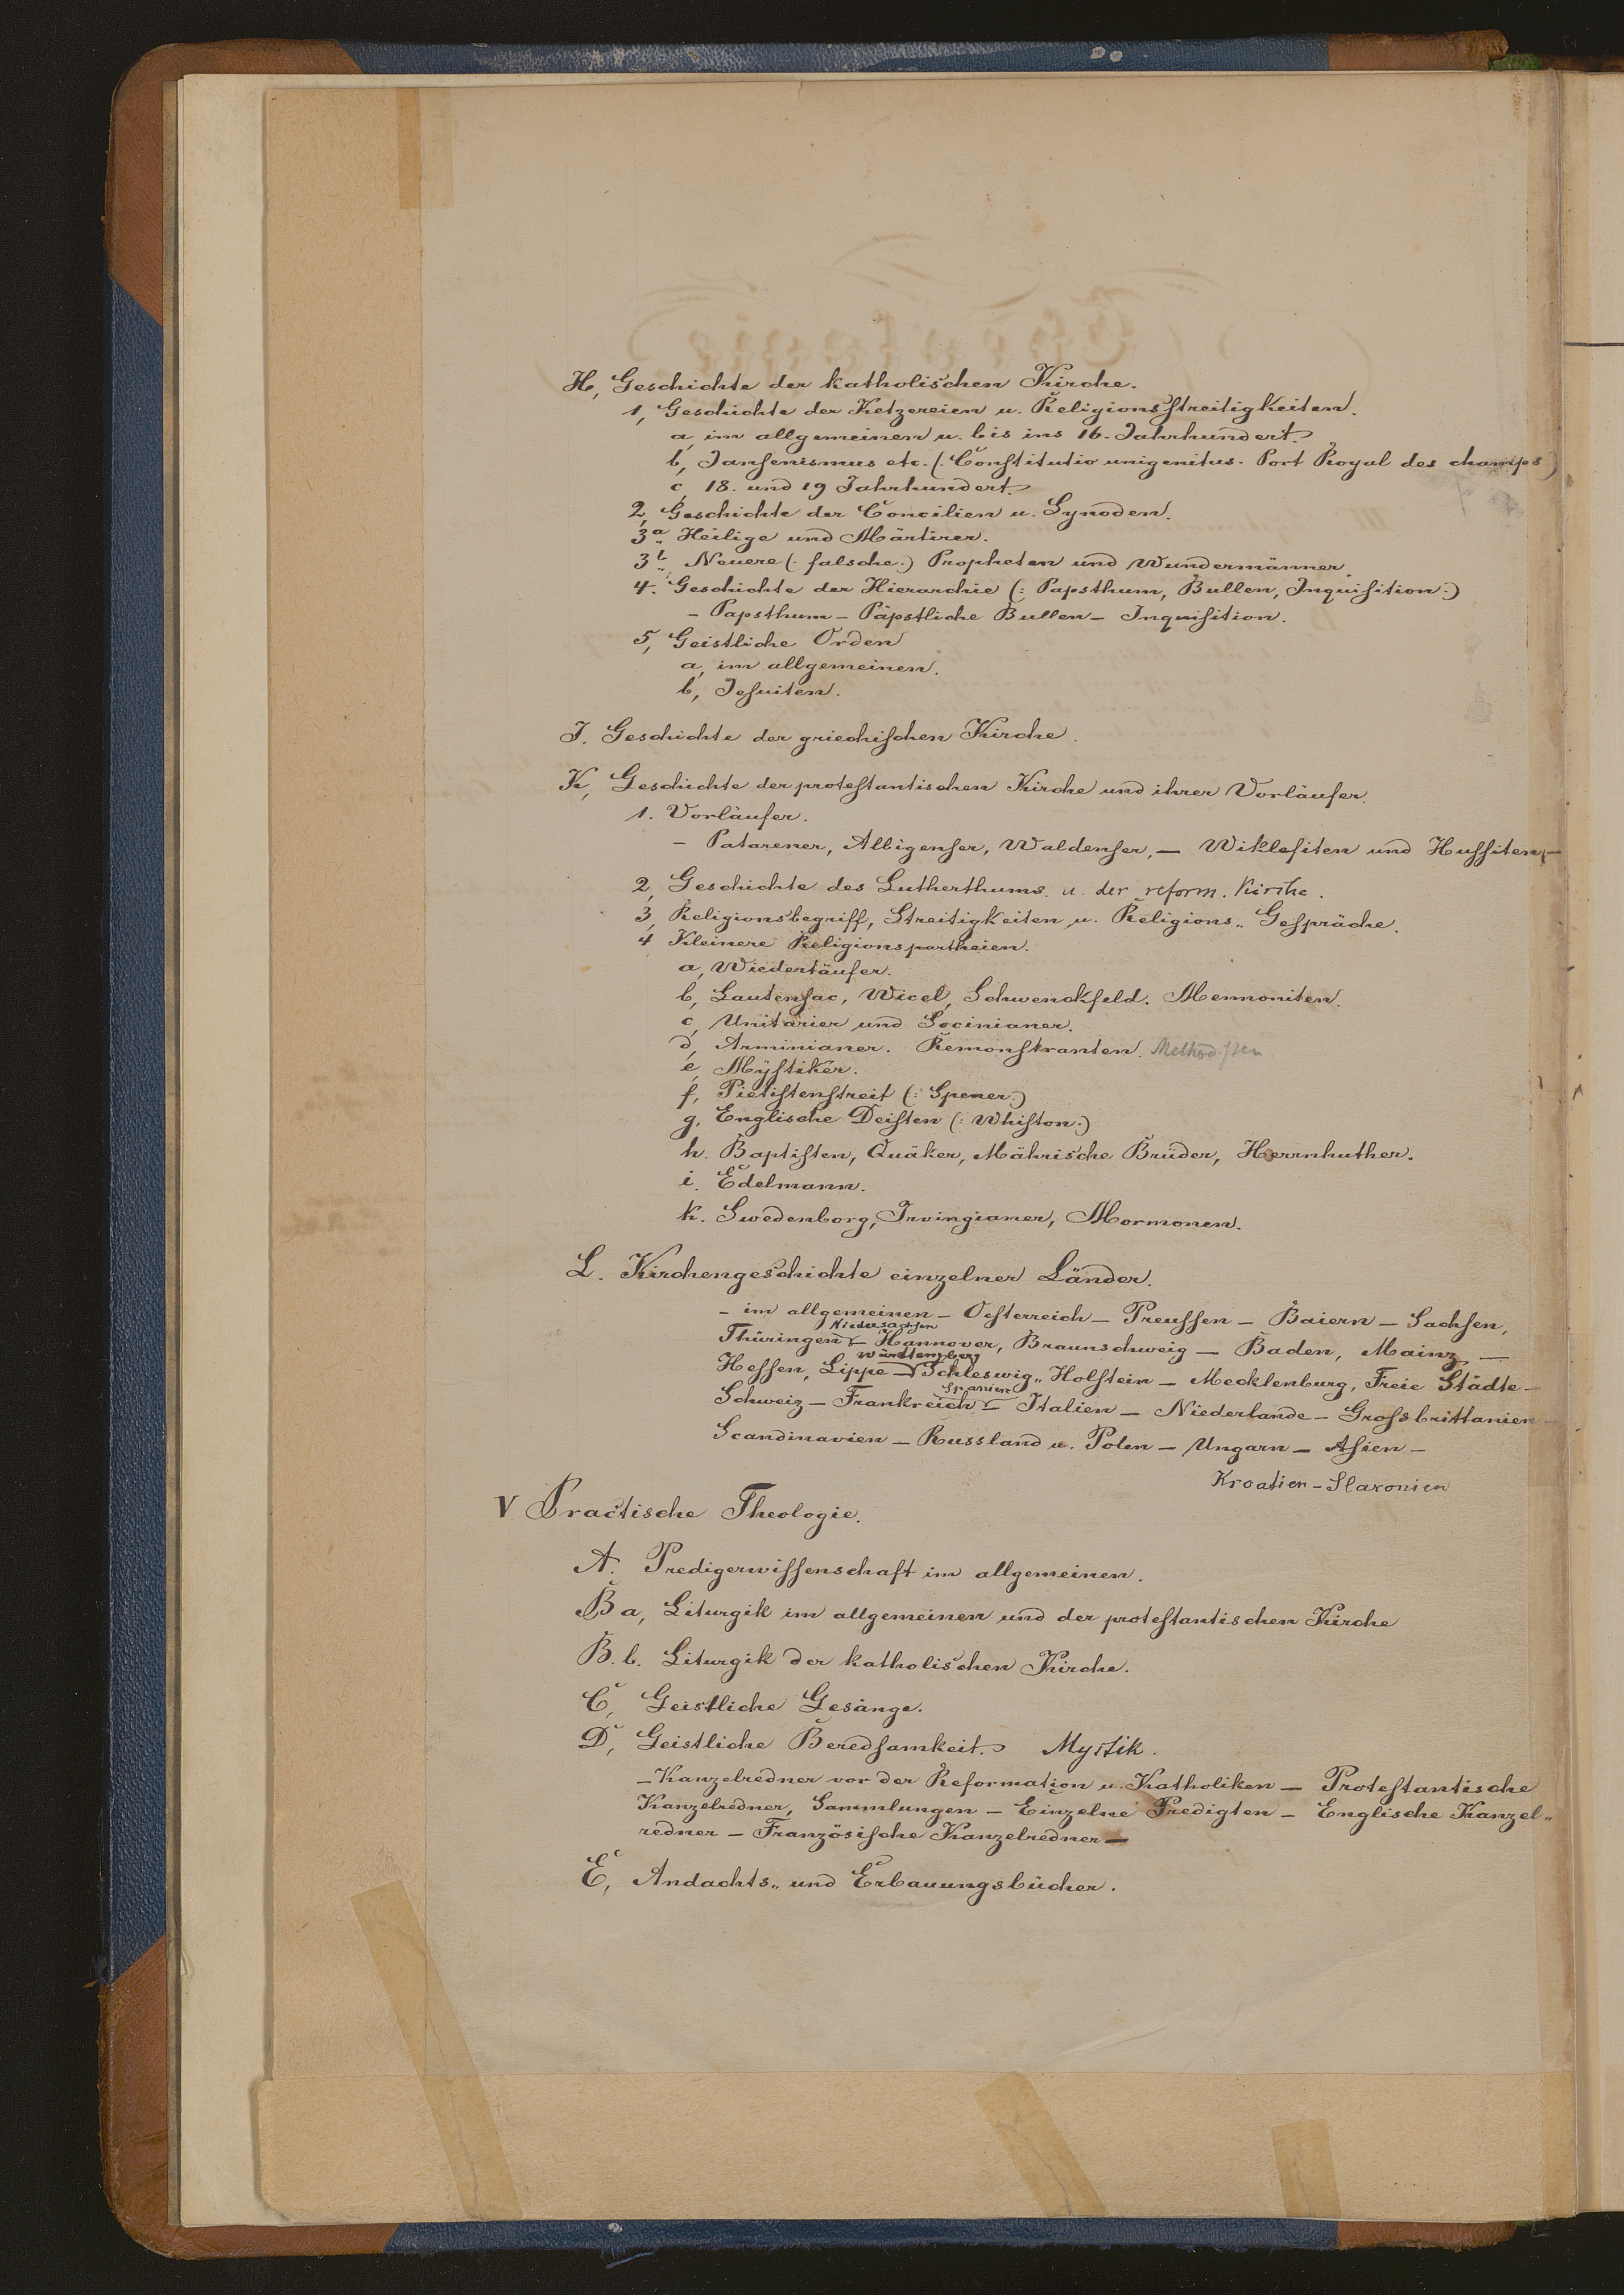 H, Geschichte der katholischen Kirche.
1, Geschichte der Ketzereien u. Religionsstreitigkeiten.
a, im allgemeinen u. bis ins 16. Jahrhundert.
b, Jansenismus etc. (: Constitutio unigenitus. Port Royal des champs)
c, 18. und 19 Jahrhundert.
2, Geschichte der Concilien u. Synoden.
3a„ Heilige und Märtirer.
3b„ Neuere (: falsche :) Propheten und Wundermänner.
4. Geschichte der Hierarchie (: Papsthum, Bullen, Inquisition :)
– Papsthum – Päpstliche Bullen – Inquisition.
5, Geistliche Orden
a, im allgemeinen.
b, Jesuiten.
J. Geschichte der griechischen Kirche.
K, Geschichte der protestantischen Kirche und ihrer Vorläufer.
1. Vorläufer.
– Patarener, Albigenser, Waldenser, – Wiklefiten und Hussiten, –
2, Geschichte des Lutherthums u. der reform. Kirche.
3, Religionsbegriff, Streitigkeiten u. Religions„ Gespräche.
4 Kleinere Religionspartheien.
a, Wiedertäufer.
b, Lautensac, Wicel, Schwenckfeld. Mennoniten.
c, Unitarier und Socinianer.
d, Arminianer. Remonstranten. Methodisten
e, Mÿstiker.
f, Pietistenstreit (: Spener :)
g. Englische Deisten (: Whiston :)
h. Baptisten, Quäker, Mährische Brüder, Herrnhuther.
i. Edelmann.
k. Swedenborg, Irvingianer, Mormonen.
L. Kirchengeschichte einzelner Länder.
– im allgemeinen – Oesterreich – Preussen – Baiern – Sachsen,
Niedersachsen
Thüringen – Hannover, Braunschweig – Baden, Mainz –
Württemberg
Hessen, Lippe – Schleswig„ Holstein – Mecklenburg, Freie Städte –
Spanien
Schweiz – Frankreich – Italien – Niederlande – Grossbrittanien –
Scandinavien – Russland u. Polen – Ungarn – Asien –
Kroatien – Slavonien
V Practische Theologie.
A. Predigerwissenschaft im allgemeinen.
B a, Liturgik im allgemeinen und der protestantischen Kirche
B. b. Liturgik der katholischen Kirche.
C, Geistliche Gesänge.
D, Geistliche Beredsamkeit. Mystik.
– Kanzelredner vor der Reformation u. Katholiken – Protestantische
Kanzelredner, Sammlungen – Einzelne Predigten – Englische Kanzel„
redner – Französische Kanzelredner –
E, Andachts„ und Erbauungsbücher.